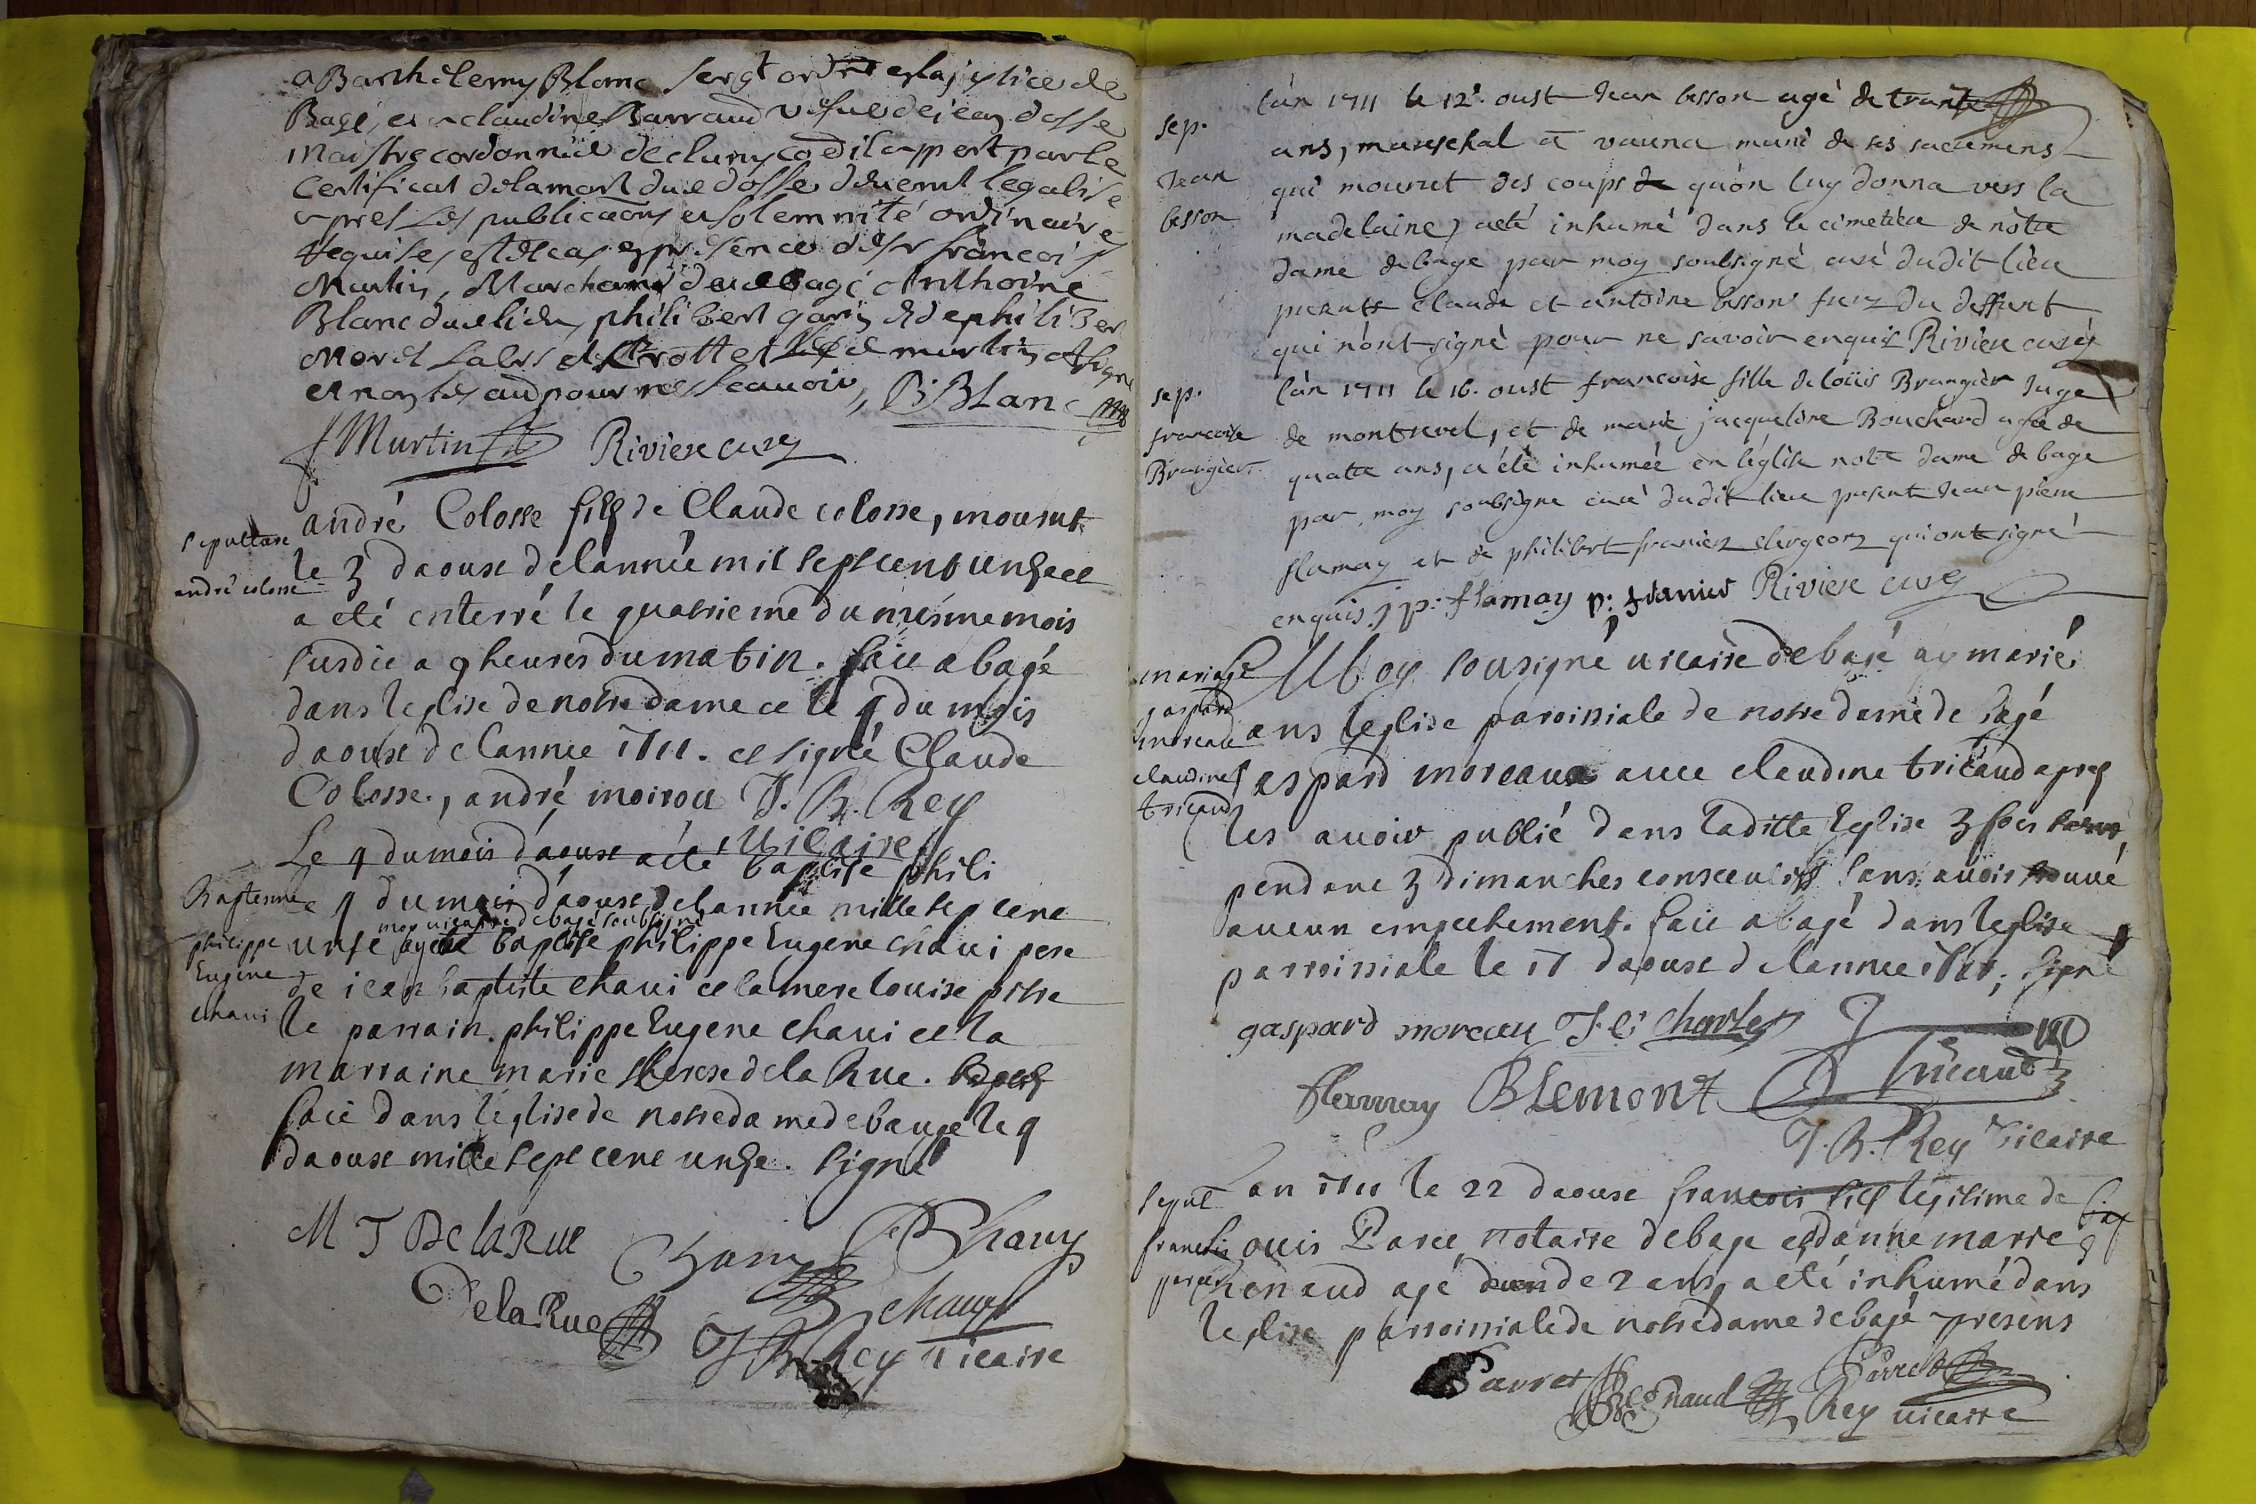 a Barthelemy Blanc sergt ordre en la justice de
Bagé, et claudine Barraud vefve de jean dosse
Maistre cordonnié de cluny co dil appert par le
Certificat de la mort dud dosse devemt legalisé
apres les publications et solemnité ordinaire
requises et de cas en presence de sr francois
Martin, Marchand dud bagé Anthoine
Blanc dud lieu, philibert garin et de philibert
Morel Labrs de Crottet led martin A signé
et non les aud pour ne scavoir, B: BLanc
f Martin Riviere curé
sepulture
andré colosse
andré Colosse fils de Claude colosse, mourut
le 3 daoust de lannée mil sept cent unze et
a eté enterré le quatrieme du mesme mois
susdit a 9 heures du matin. fait a bagé
dans l'eglise de notre dame ce le 4 du mois
daoust de lannee 1711. et signé Claude
Colosse, andré moirou J. B. Rey
Vicaire
Le 4 du mois d'aoust a été baptise phili
Bastenne
philippe
Eugene
chavi
Le 4 du mois d'aoust de lannée mille sept cent
moy vicaire de bagé soubsigné
unze ay baptise philippe Eugene chavi pere
de iean baptiste chavi et la mere louise pitre
le parrain philippe Eugene chavi et la
marraine marie therese de la Rue.
fait dans l'eglise de notre dame de bauge le 4
daoust mille sept cent unze. signé
M T De la Rue Chavy JB Chavy
De la Rue chavy
J B Rey vicaire
sep.
Jean
besson
l'an 1711 le 12e. oust Jean besson agé de trante
ans, mareschal a vauna muni de ses sacremens
qui mourut des coups de qu'on luy donna vers la
madelaine, a eté inhumé dans le cimetiere de notre
dame de bage par moy soubsigné curé dudit lieu
presents claude et antoine besson frez du deffunt
qui n'ont signé pour ne savoir enquis Riviere curé
sep.
francoise
Brangier
l'an 1711 le 16. oust francoise fille de loüis Brangier Juge
de montrevel, et de marie jacqueline Bouchard agée de
quatre ans, a été inhumée en l'église notre dame de bage
par moy soubsigne curé dudit lieu present Jean pierre
flamay et de philibert franier clergeons qui ont signé
enquis. j p: flamay p: franier Riviere curé
mariage
gaspard
moreau
claudine
tricaud
Moy sousigné vicaire de bagé ay marié
dans leglise paroissiale de notre dame de bagé
gaspard moreau avec claudine tricaud apres
les avoir publié dans laditte Eglise 3 fois
pendant 3 dimanches consecutifs sans avoir trouvé
aucun empechement. fait a bagé dans leglise
parroissiale le 17 daoust de lannee 1711; signé
gaspard moreau J. C. Charles
flamay BLemont Tricaud
J. B. Rey Vicaire
sepul
francois
parret
Lan 1711 le 22 daoust francois fils legitime de
Louis Paret notaire de bage et danne marie
Renaud agé de 2 ans, a eté inhumé dans
leglise parroissiale de notre dame de bagé presens
Parret Regnaud Parret
J B Rey vicaire